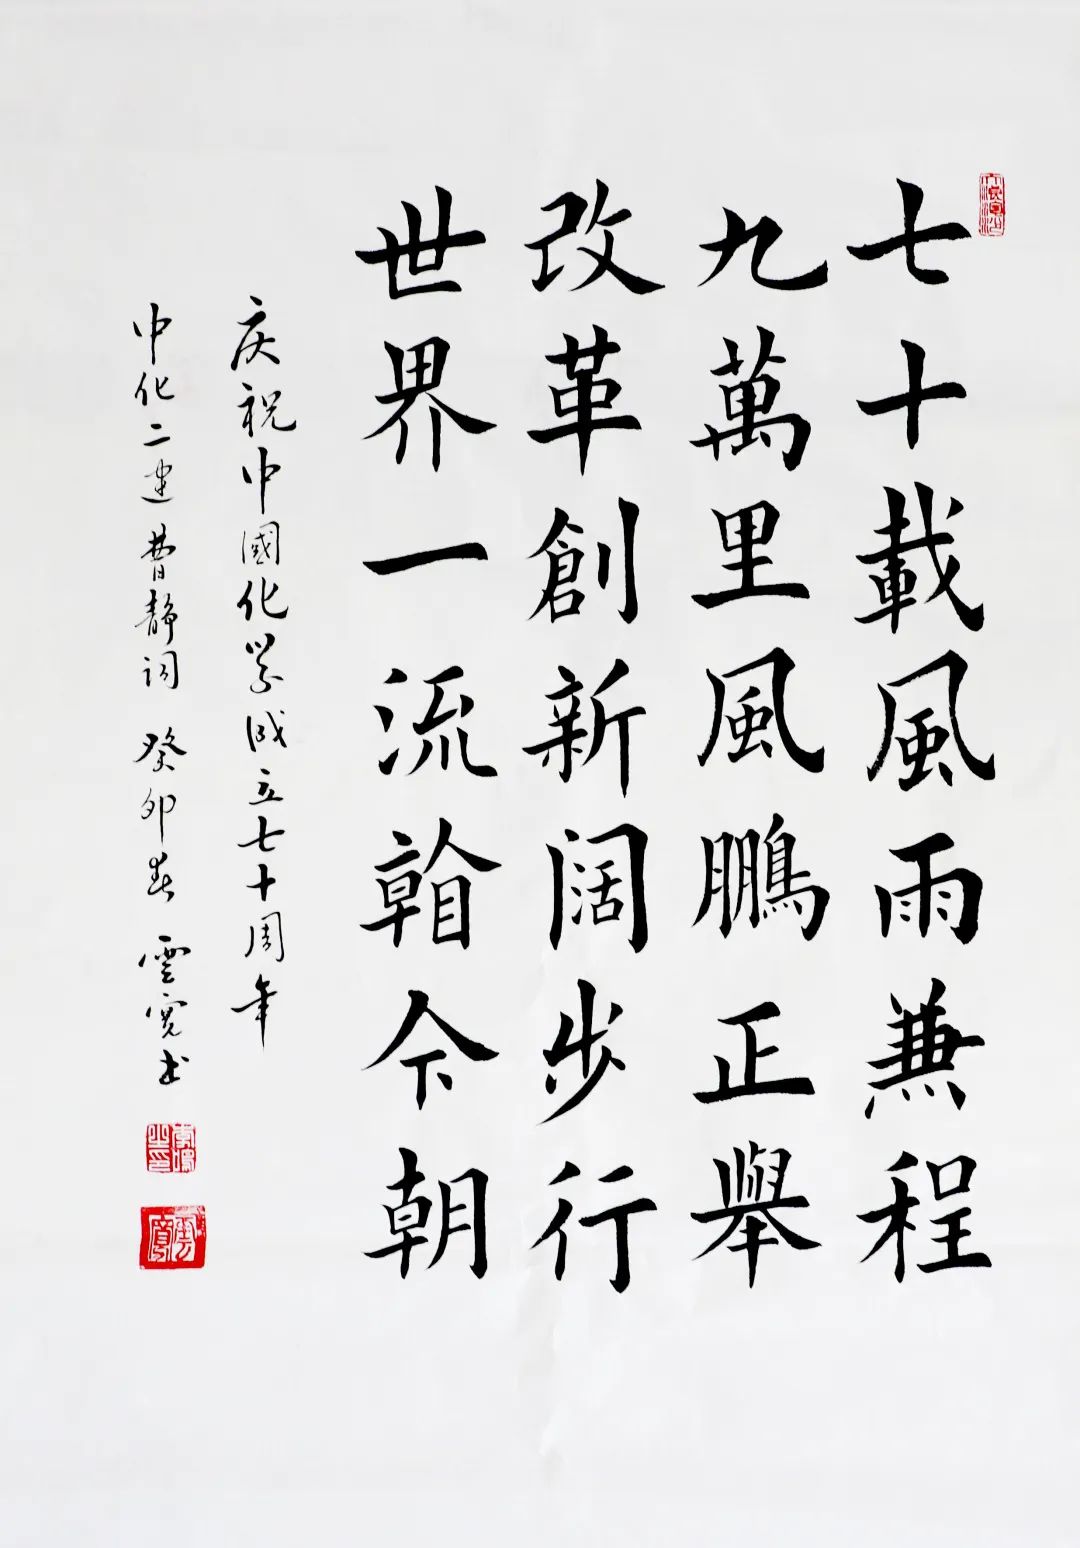 七十載風雨兼程
九萬里風鵬正舉
改革創新阔步行
世界一流看今朝
庆祝中國化学成立七十周年
中化二建曹静词 癸卯春 雲寬书